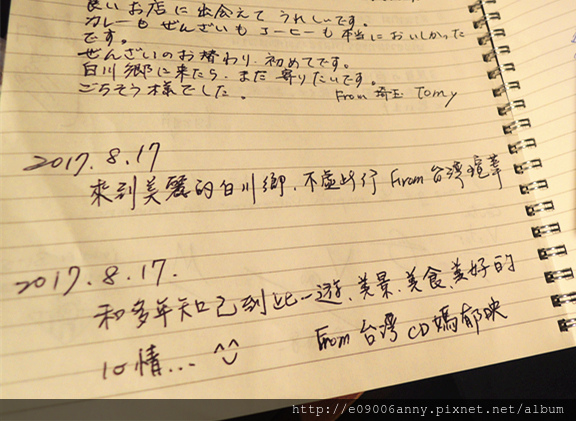 良いお店に出会えてうれしいです。
カレーもぜんざいもコーヒーも本当においしかった
です。
ぜんざいのお替わり、初めてです。
白川郷に来たら、また寄りたいです。
ごちそう様でした。 From 埼玉 Tomy
2017.8.17
來到美麗的白川鄉,不虛此行 From 台灣
2017.8.17.
和多年知己到此一遊,美景、美食、美好的
心情... ^^
From 台灣 CD媽郁映
http://e09006anny.pixnet.net/album